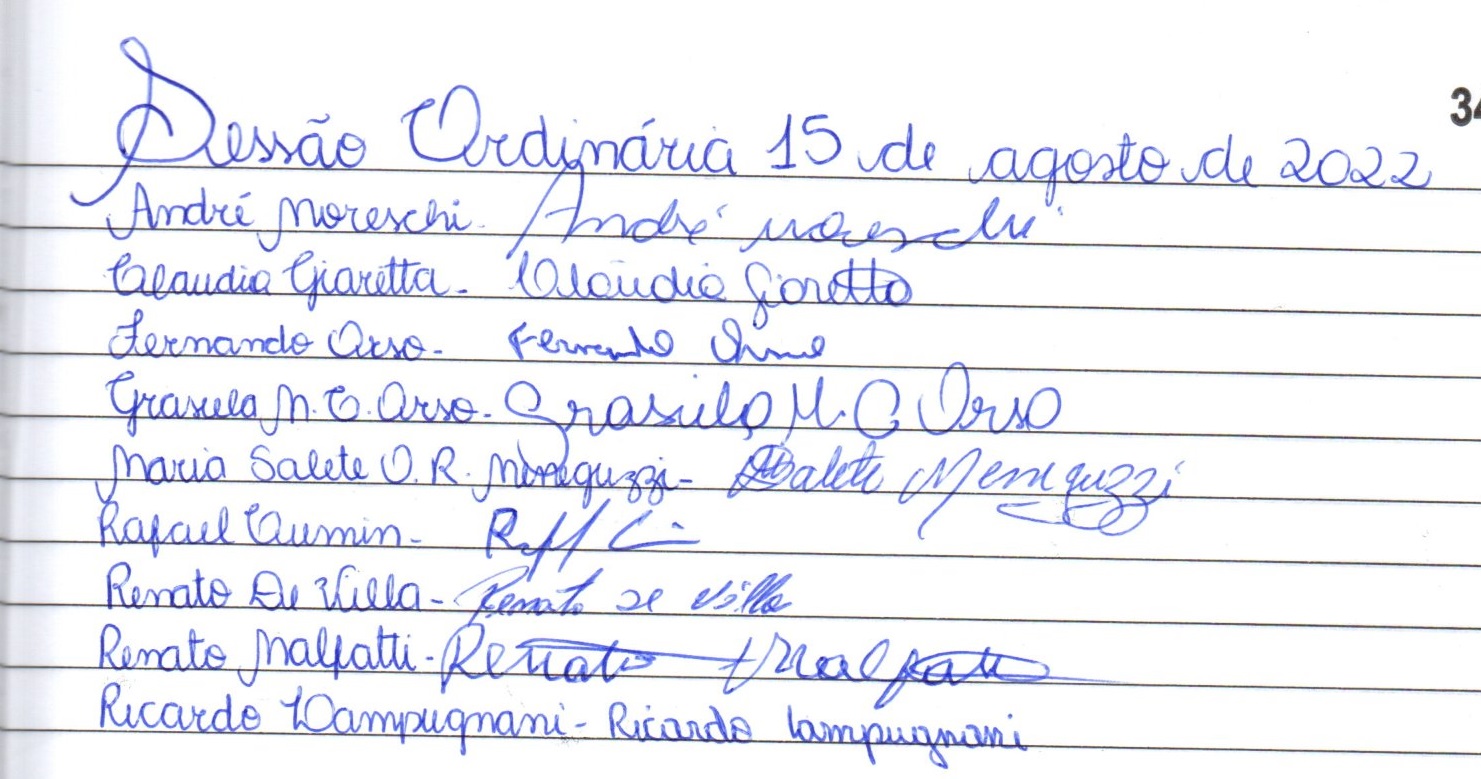 34
Sessão Ordinária 15 de agosto de 2022
André Moreschi - André Moreschi
Claudia Giaretta - Claudia Giaretta
Fernando Orso - Fernando Orso
Grasiela M. C. Orso - Grasiela M. C. Orso
Maria Salete O. R. Meneguzzi - Salete Meneguzzi
Rafael Cumin -
Renato De Villa - Renato De Villa
Renato Malfatti - Renato Malfatti
Ricardo Lampugnani - Ricardo Lampugnani